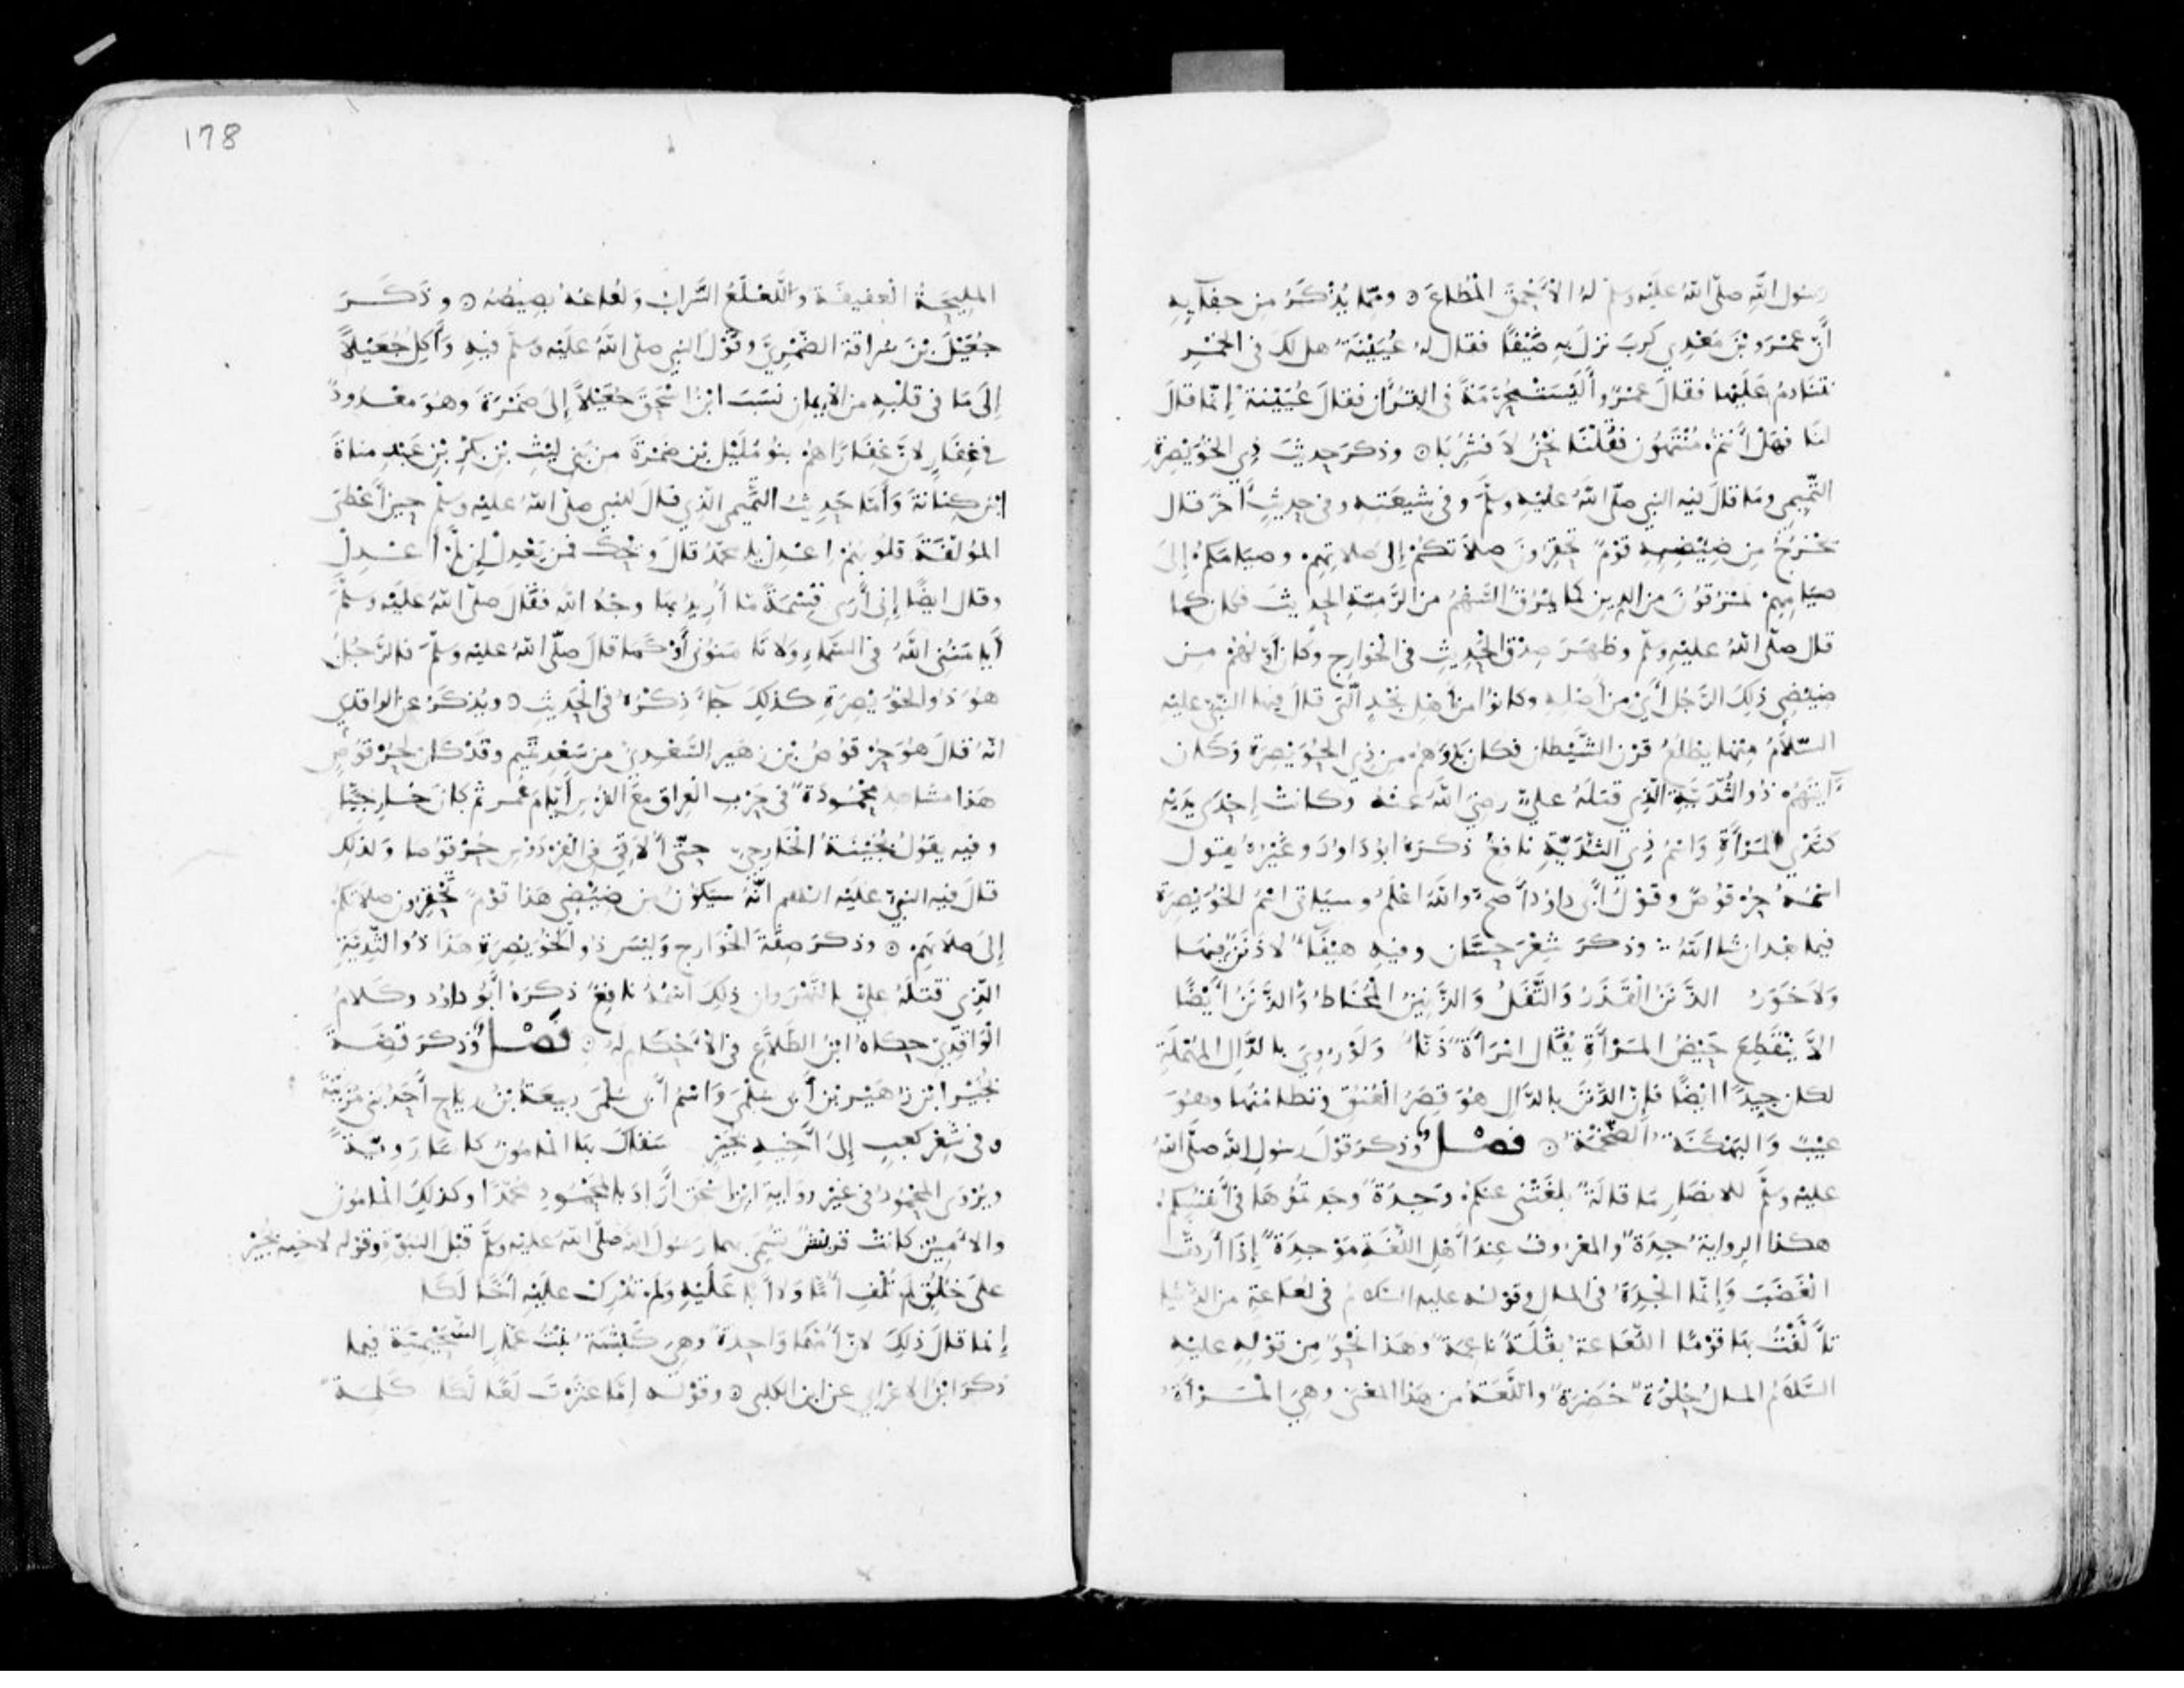 رسول الله صلى الله عليه وسلم له الأحمق المطاع ه ومما يذكر من جفآيه
أن عمرو بن معدي كرب نزل به ضيفا فقال له عيينة هل لك في الخمر
نتنادم عليها فقال عمرو أليست محرمة في القرآن فقال عيينة إنما قال
لنا فهل أنتم منتهون فقلنا نحن لا فشربا ه وذكر حديث ذي الخويصرة
التميمي وما قال فيه النبي صلى الله عليه وسلم وفي شيعته وفي حديث آخر قال
يخرج من ضيضيه قوم تحقرون صلاتكم إلى صلاتهم وصيامكم إلى
صيامهم يمرقون من الدين كما يمرق السهم من الرمية الحديث فكان كما
قال صلى الله عليه وسلم وظهر صدق الحديث في الخوارج وكان أولهم من
ضيضي ذلك الرجل أي من أصله وكانوا من أهل نجد التي قال فيها النبي عليه
السلام منها يطلع قرن الشيطان فكان بدوهم من ذي الخويصرة وكان
آيتهم ذو الثدية الذي قتله علي رضي الله عنه وكانت إحدى يديه
كثدي المرأة واسم ذي الثدية نافع ذكره ابو داود وغيره يقول
اسمه حرقوص وقول أبي داود أصح والله اعلم وسياتي اسم الخويصرة
فيما بعد ان شا الله وذكر شعر حسان وفيه هيفآ لا ذنن فيها
ولا خور الذنن القذر والتفل والذنين المخاط والذنن أيضا
ألا ينقطع حيض المرأة يقال امرأة ذنا ولو روي بالدال المهملة
لكان جيدا ايضا فإن الدنن بالدال هو قصر العنق وتطامنها وهو
عيب والبهكنة الضخمة ه فصل وذكر قول رسول الله صلى الله
عليه وسلم للانصار ما قالة بلغتني عنكم وجدة وجدتموها في أنفسكم
هكذا الرواية جدة والمعروف عند أهل اللغة موجدة إذا أردت
الغضب وإنما الجدة في المال وقوله عليه السلام في لعاعة من الدنيا
تألفت بها قوما اللعاعة بقلة ناعمة وهذا نحو من قوله عليه
السلام المال حلوة خضرة واللعة من هذا المعنى وهي المرأة
178
المليحة العفيفة واللعلع السراب ولعاعه بصيصه ه وذكر
جعيل بن سراقة الضمري وقول النبي صلى الله عليه وسلم فيه وأكل جعيلا
إلى ما في قلبه من الايمان نسب ابن اسحق جعيلا إلى ضمرة وهو معدود
في غفار لأن غفارا هم بنو مليل بن ضمرة من بني ليث بن بكر بن عبد مناة
ابن كنانة وأما حديث التميمي الذي قال للنبي صلى الله عليه وسلم حين أعطى
المؤلفة قلوبهم اعدل يا محمد قال ويحك فمن يعدل إن لم أعدل
وقال ايضا إني أرى قسمة ما أريد بها وجه الله فقال صلى الله عليه وسلم
أيامنني الله في السماء ولا تامنوني أو كما قال صلى الله عليه وسلم فالرجل
هو ذو الخويصرة كذلك جاء ذكره في الحديث ه ويذكر عن الواقدي
انه قال هو حرقوص بن زهير السعدي من سعد تميم وقد كان لحرقوص
هذا مشاهد محمودة في حرب العراق مع الفرس أيام عمر ثم كان خارجيا
وفيه يقول الخارجي حتى ألاقي في الفردوس حرقوصا ولذلك
قال فيه النبي عليه السلام انه سيكون من ضيضي هذا قوم تحقرون صلاتكم
إلى صلاتهم ه وذكر صفة الخوارج وليس ذو الخويصرة هذا ذو الثدية
الذي قتله علي بالنهروان ذلك اسمه نافع ذكره أبو داود وكلام
الواقدي حكاه ابن الطلاع في الأحكام له ه فصل وذكر قصة
بجير ابن زهير بن أبي سلمى واسم أبي سلمى ربيعة بن رياح أحد بني مزينة
ه في شعر كعب إلى أخيه بجير سقاك بها المامون كاسا روية
ويروى المحمود في غير رواية ابن اسحق أراد بالمحمود محمدا وكذلك المامون
والأمين كانت قريش تسمي بهما رسول الله صلى الله عليه وسلم قبل النبوة وقوله لاخيه بجير
على خلق لم تلف أما ولا أبا عليه ولم تدرك عليه أخا لكا
إنما قال ذلك لأن أمهما واحدة وهي كبشة بنت عمار السحيمية فيما
ذكر ابن الاعرابي عن ابن الكلبي ه وقوله إما عثرت لعا لكا كلمة